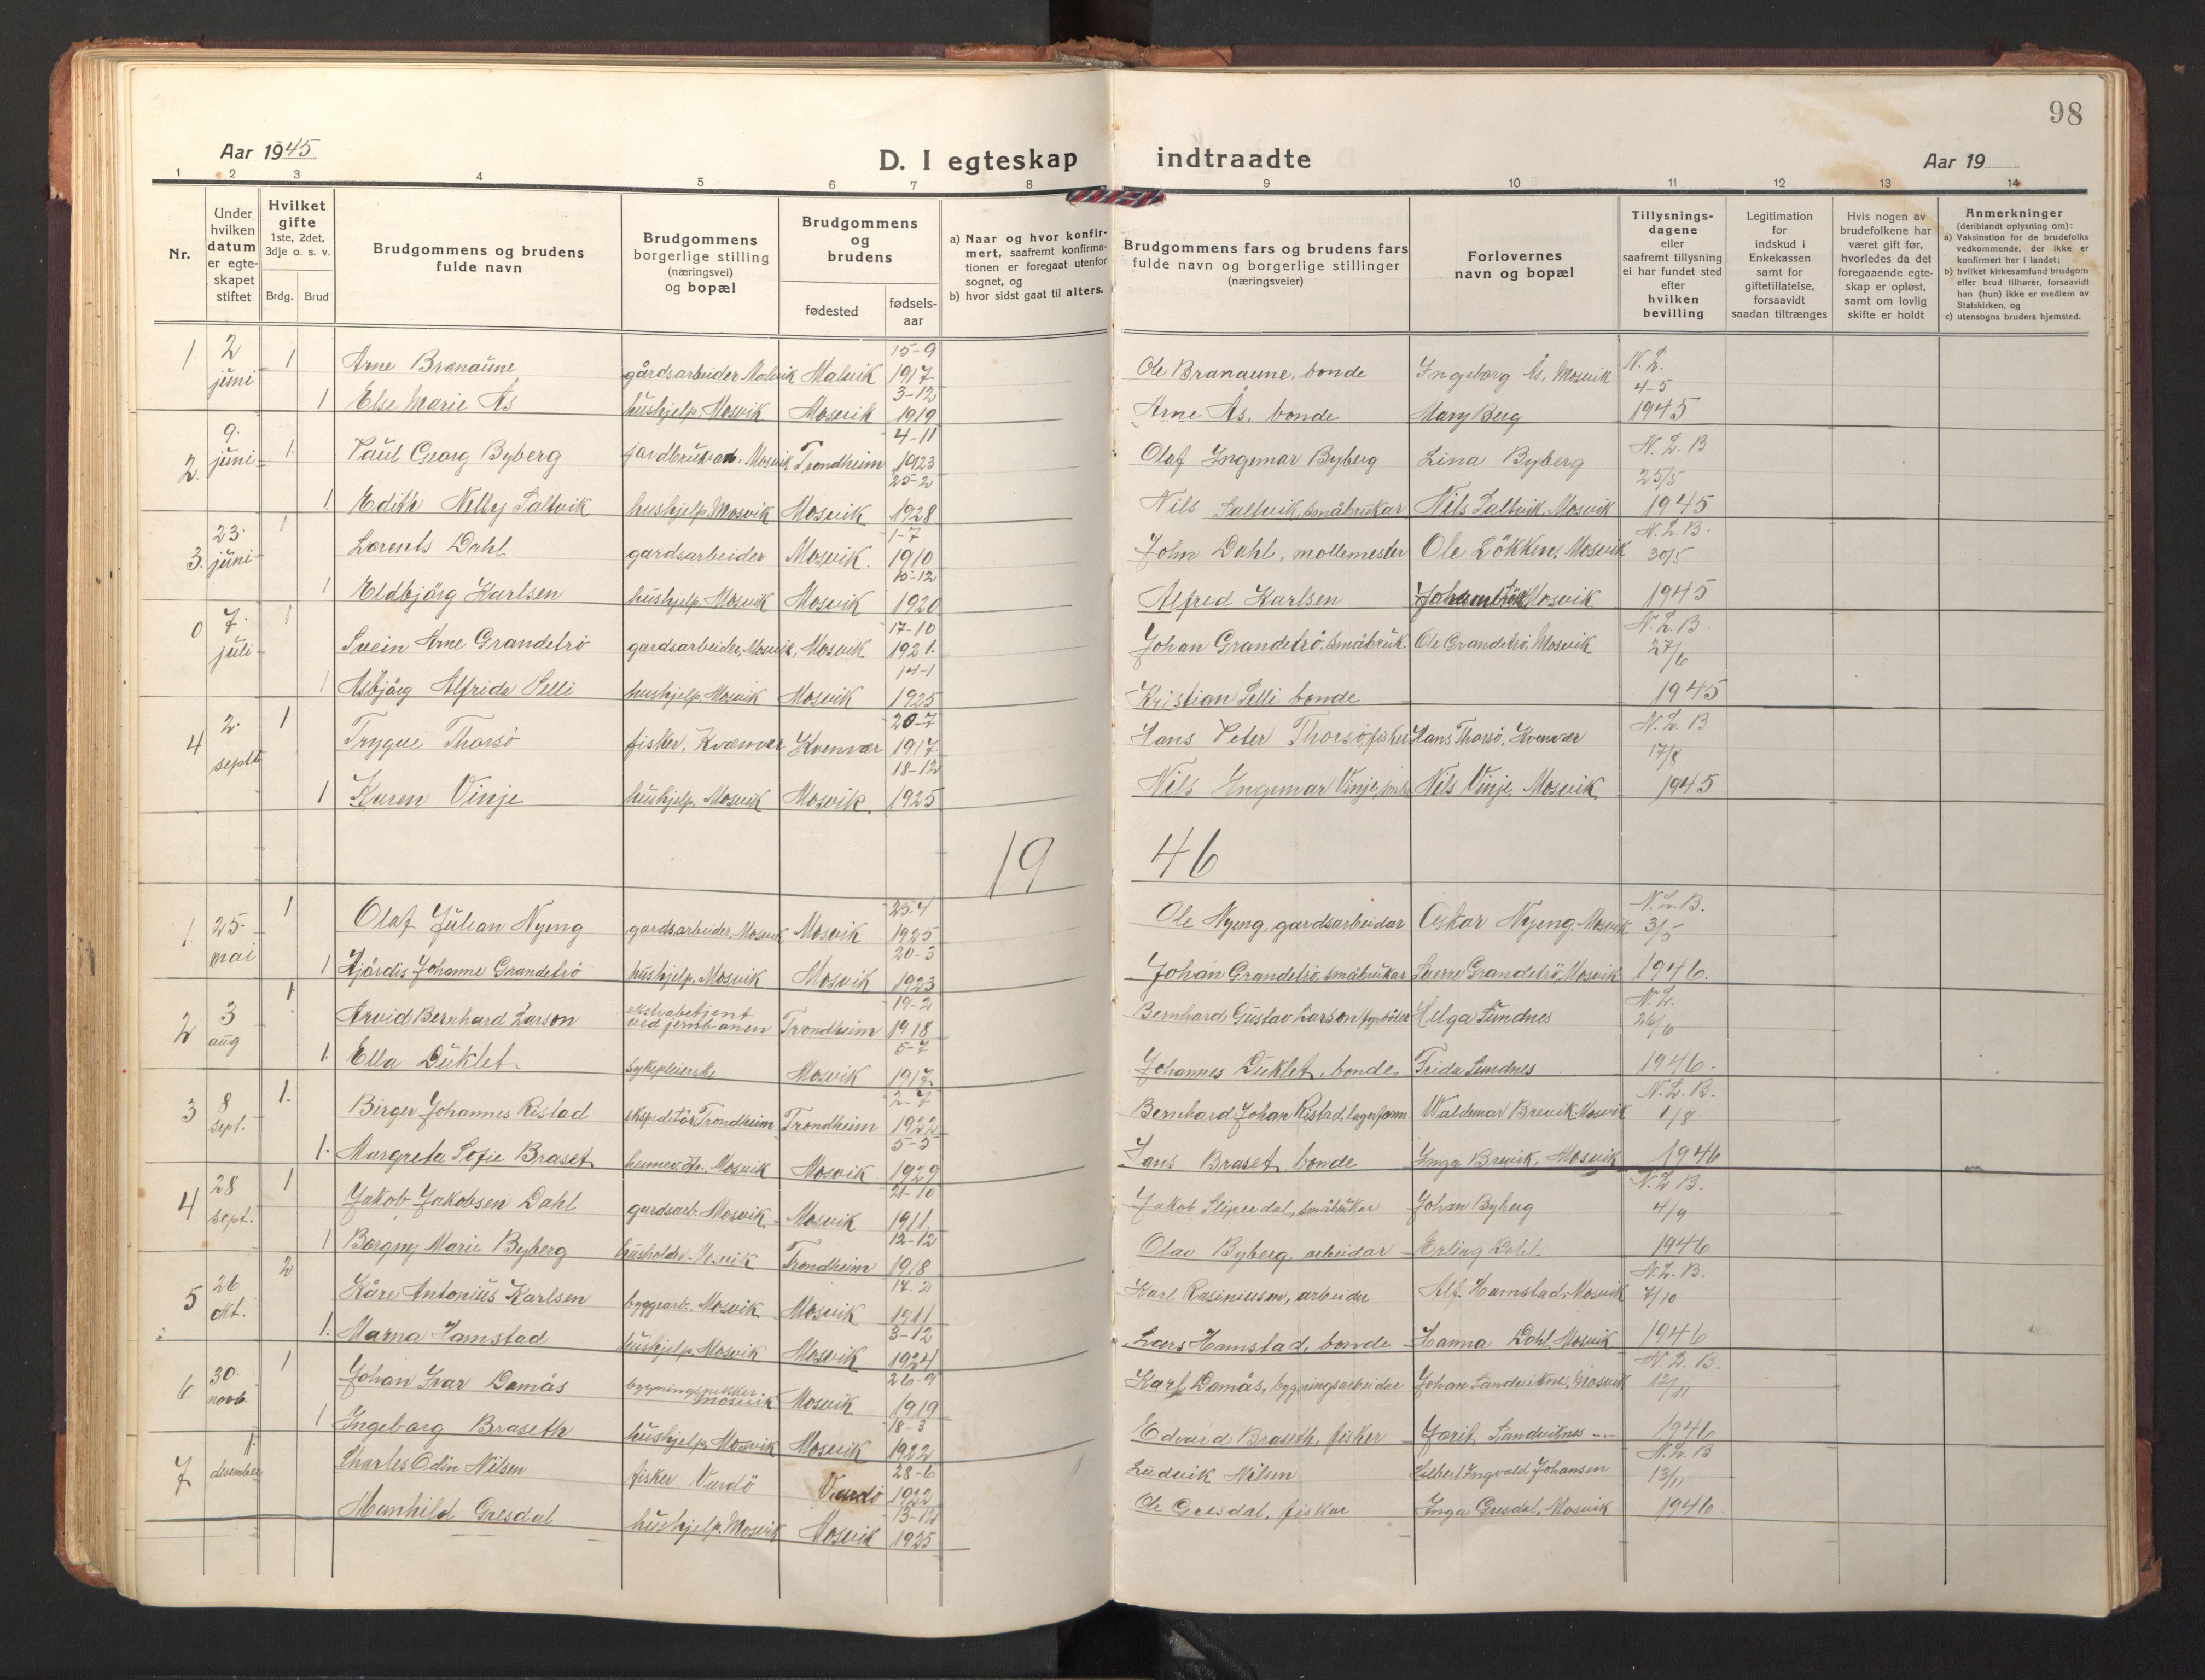 98
Aar 1945
D. I egteskap indtraadte
Aar 19
1 2 3 4 5 6 7 8 9 10 11 12 13 14
Nr.
Under hvilken datum er egteskapet stiftet
Hvilket gifte
1ste, 2det, 3dje o. s. v.
Brdg. Brud
Brudgommens og brudens fulde navn
Brudgommens borgerlige stilling (næringsvei) og bopæl
Brudgommens og brudens
fødested
fødsels-aar
a) Naar og hvor konfirmert, saafremt konfirmationen er foregaat utenfor sognet, og
b) hvor sidst gaat til alters.
Brudgommens fars og brudens fars fulde navn og borgerlige stillinger (næringsveier)
Forlovernes navn og bopæl
Tillysningsdagene eller saafremt tillysning ei har fundet sted efter hvilken bevilling
Legitimation for indskud i Enkekassen samt for giftetillatelse, forsaavidt saadan tiltrænges
Hvis nogen av brudefolkene har været gift før, hvorledes da det foregaaende egteskap er opløst, samt om lovlig skifte er holdt
Anmerkninger
(deriblandt oplysning om):
a) Vaksination for de brudefolks vedkommende, der ikke er konfirmert her i landet;
b) hvilket kirkesamfund brudgom eller brud tilhører, forsaavidt han (hun) ikke er medlem av Statskirken, og
c) utensogns bruders hjemsted.
1. 2 juni 1 Arne Brænaune gårdsarbeider Malvik Malvik 15-9 1917 Ole Branaune, bonde Ingeborg Ås, Mosvik N.L. 4-5
1 Else Marie Ås hushjelp, Mosvik Mosvik 3-12 1919 Arne Ås, bonde Mary Berg 1945
2. 9. juni 1. Paul Georg Byberg jordbruksarb. Mosvik Trondheim 4-11 1923 Olaf Ingemar Byberg Lina Byberg N.L.B 25/5
1. Edith Nelly Saltvik hushjelp, Mosvik Mosvik 25-2 1928 Nils Saltvik, småbrukar Nils Saltvik, Mosvik 1945
3. 23. juni 1 Lorents Dahl gardsarbeider Mosvik. 1-7 1910 John Dahl, mollemester Ole Lökken, Mosvik N.L.B. 30/5
1 Eldbjörg Karlsen hushjelp, Mosvik Mosvik 15-12 1920 Alfred Karlsen Mosvik 1945
0 7. juli 1 Svein Arne Grandetrö gardsarbeider, Mosvik, Mosvik 17-10 1921. Johan Grandetrö, småbruk. Ole Grandetrö, Mosvik N.L.B. 27/6
1 Asbjörg Alfrida Selli hushjelp, Mosvik Mosvik 14-1 1925 Kristian Selli bonde 1945
4 2. septb 1 Trygve Thorsö fisker, Kvenvær Kvenvær 20-7 1917 Hans Peter Thorsö, fisker Hans Thorsö, Kvenvær N.L.B 17/8
1 Karen Vinje hushjelp, Mosvik Mosvik. 18-12 1925 Nils Ingemar Vinje, Nils Vinje, Mosvik 1945
19 46
1. 25. mai 1 Olaf Julian Nyeng gardsarbeider, Mosvik Mosvik 25-4 1925 Ole Nyeng, gardsarbeidar Oskar Nyeng, Mosvik N.L.B. 3/5
1 Hjördis Johanne Grandetrö hushjelp, Mosvik Mosvik 20-3 1923 Johan Grandetrö, småbrukar Sverre Grandetrö, Mosvik 1946.
2 3 aug 1 Arvid Bernhard Larson ekstrabetjent ved jernbanen Trondheim 19-2 1918 Bernhard Gustav Larson fyrböter Helga Sundnes N.L. 26/6
1. Ella Duklet sykepleierske Mosvik 5-7 1917 Johannes Duklet, bonde, Frida Sundnes 1946.
3 8 sept. 1. Birger Johannes Ristad ekspeditör, Trondheim Trondheim 2-7 1922 Bernhard Johan Ristad, lagerform. Waldemar Brevik Mosvik N.L.B. 1/8.
1. Margreta Sofie Braset Mosvik Mosvik 5-5 1929 Jans Braset bonde Inga Brevik, Mosvik 1946
4 28 sept. 1 Jakob Jakobsen Dahl gardsarb. Mosvik Mosvik 21-10 1911. Jakob småbrukar Johan Byberg N.L.B. 4/9
1 Borgny Marie Byberg husholder. Mosvik Trondheim 12-12 1918 Olav Byberg, arbeidar Erling Dahl 1946
5 26 okt. 2 Kåre Antonius Karlsen byggearb. Mosvik Mosvik 17-2 1911 Karl Rasiniusen, arbeider Alf Hamstad, Mosvik N.L.B. 7/10
1. Marna Hamstad hushjelp Mosvik Mosvik 3-12 1924 Lars Hamstad, bonde Hanna Dahl, Mosvik 1946
6 30. novb. 1 Johan Ivar Damås Mosvik Mosvik 26-9 1919 Karl Damås, bygningsarbeidar Johan Sandviknes, Mosvik N.L.B. 12/11
1 Ingeborg Braseth hushjelp, Mosvik Mosvik 18-3 1922 Edvard Braseth, fisker Jorit Sandviknes -.- 1946
7 1. desember Charles Odin Nilsen fisker Vardö Vardö 28-6 1922 Ludvik Nilsen Ingvald Johansen N.L.B 13/11
Manhild Gresdal hushjelp, Mosvik Mosvik 13-12 1925 Ole Gresdal, fiskar Inga Gresdal, Mosvik 1946.